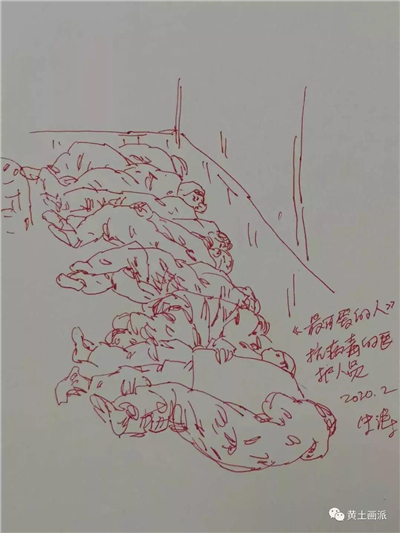 《最可爱的人》
抗病毒的医
护人员
2020.2
黄土画派